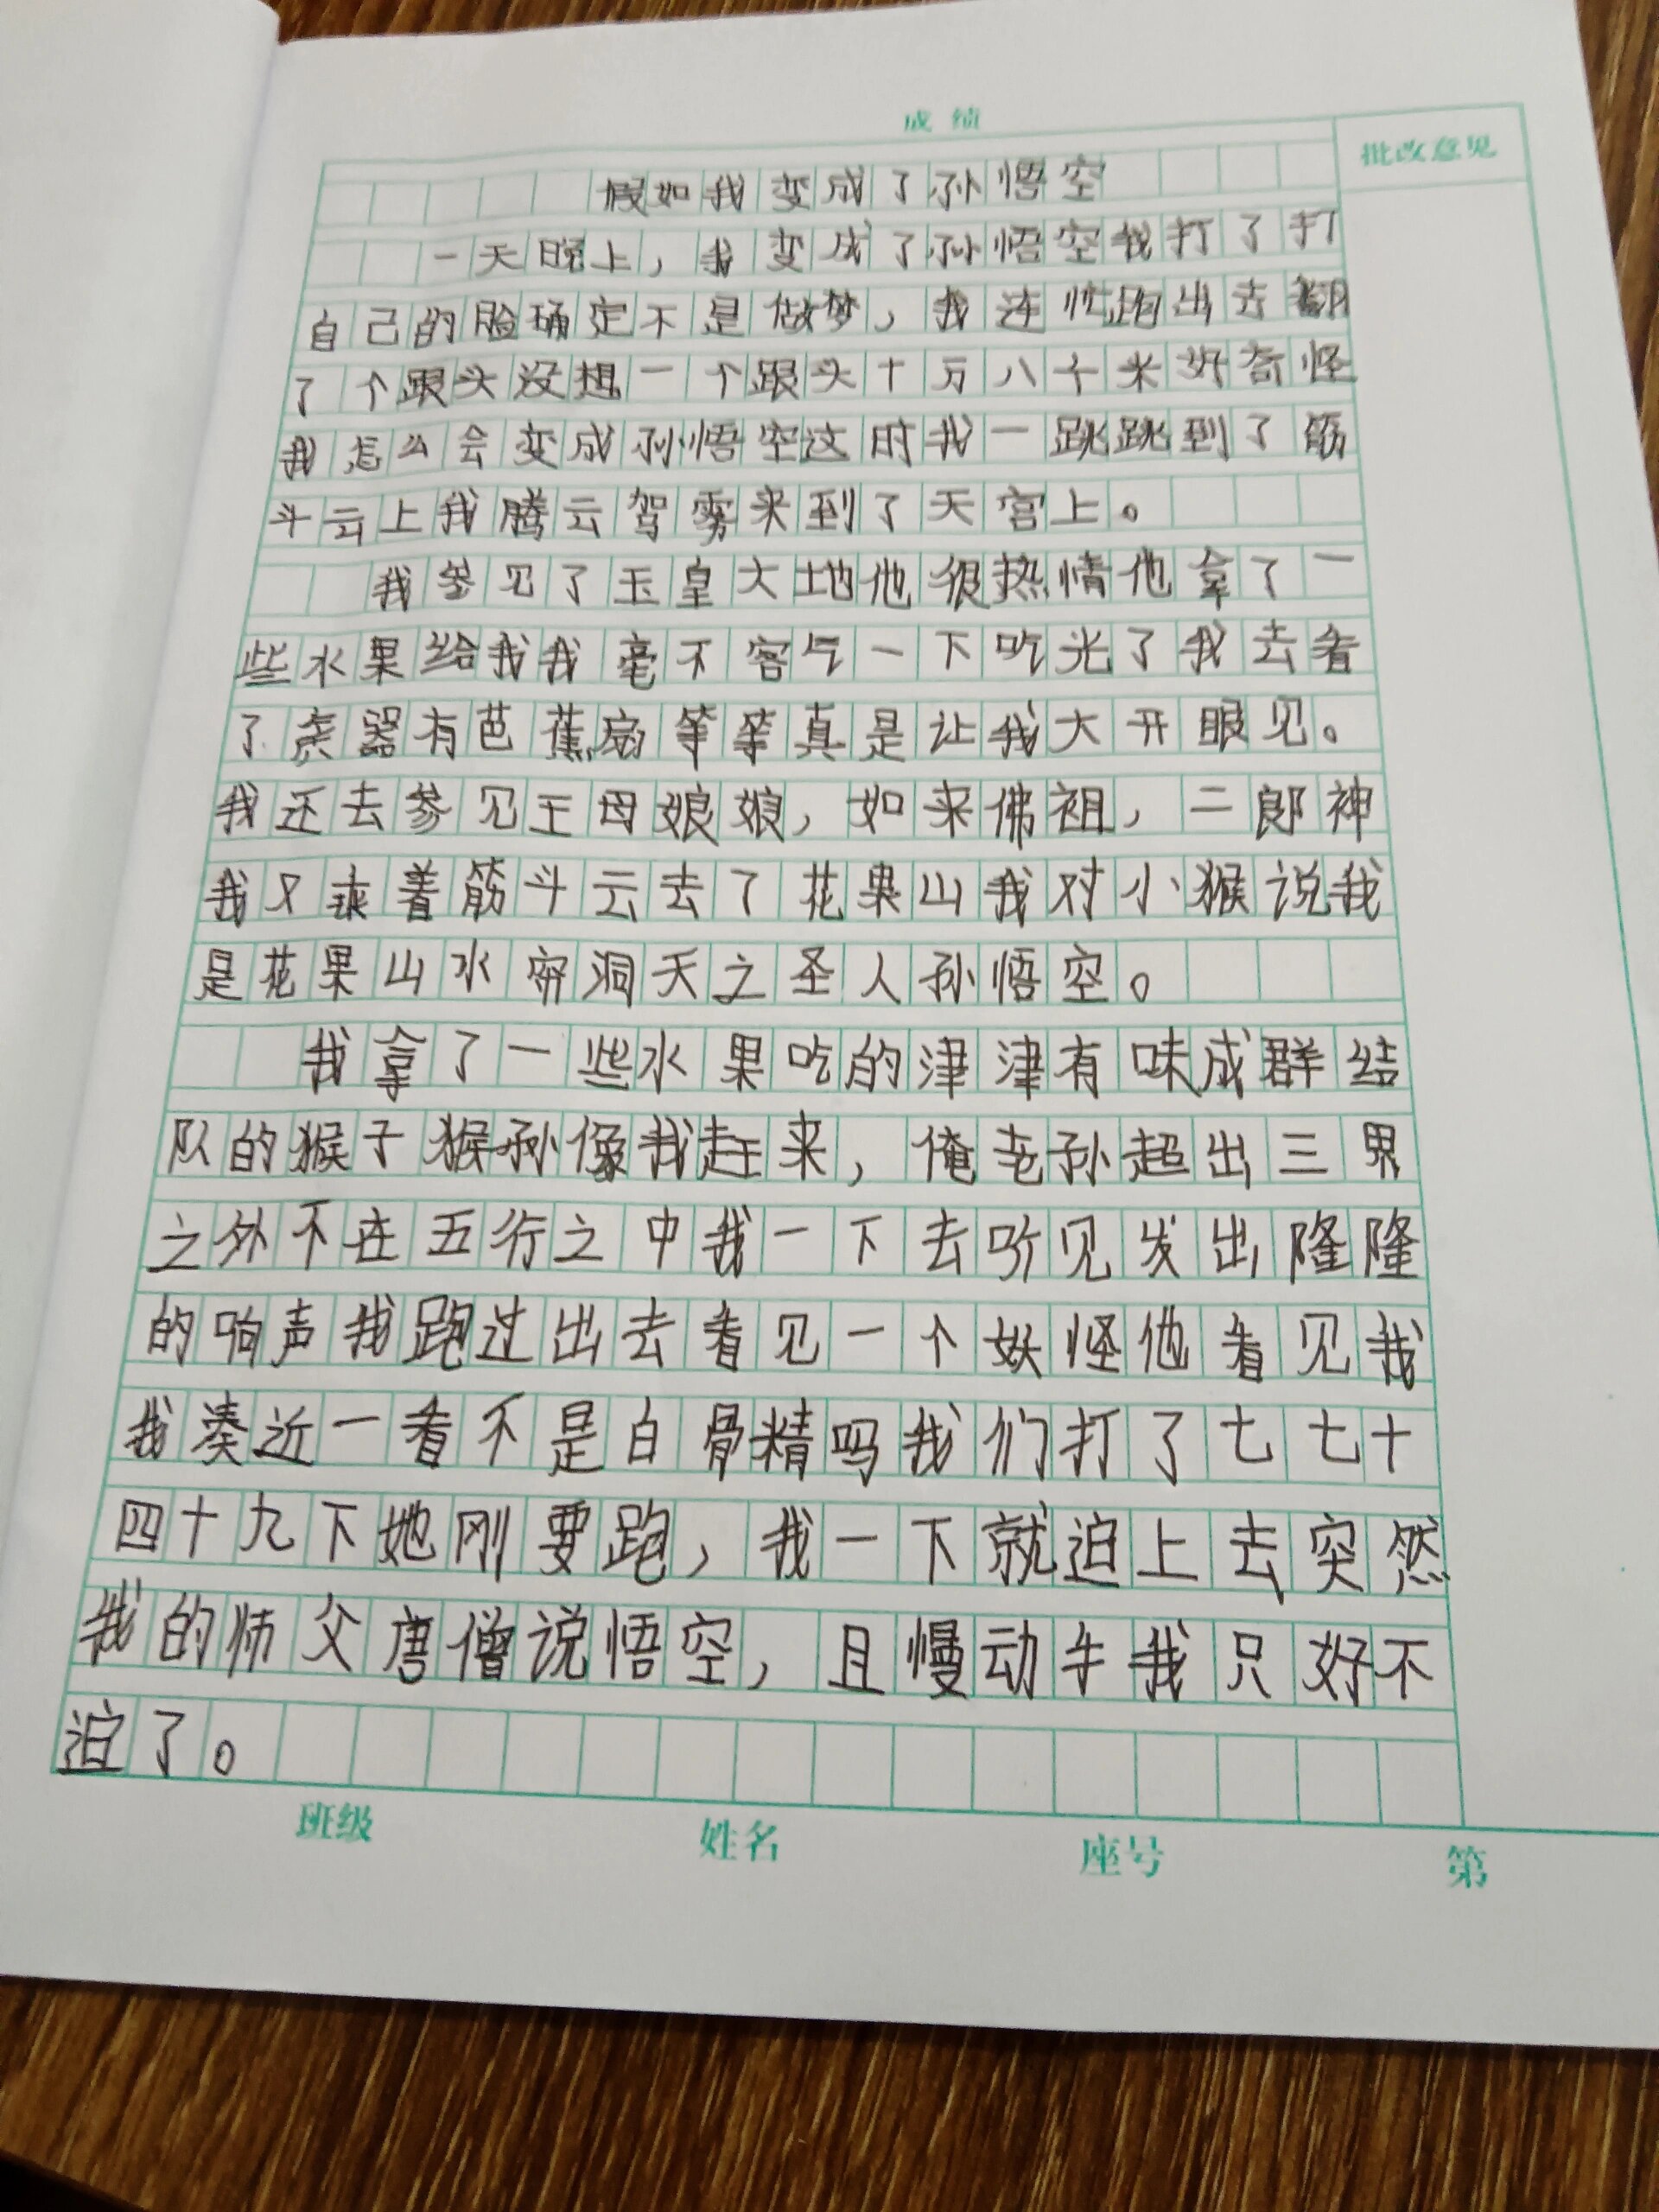 成绩
批改意见
假如我变成了孙悟空
一天晚上，我变成了孙悟空我打了打
自己的脸确定不是做梦，我连忙跑出去翻
了个跟头没想一个跟头十万八千米好奇怪
我怎么会变成孙悟空这时我一跳跳到了筋
斗云上我腾云驾雾来到了天宫上。
我参见了玉皇大地他很热情他拿了一
些水果给我我毫不客气一下吃光了我去看
了 器有芭蕉扇等等真是让我大开眼见。
我还去参见王母娘娘，如来佛祖，二郎神
我又 着筋斗云去了花果山我对小猴说我
是花果山水 洞天之圣人孙悟空。
我拿了一些水果吃的津津有味成群结
队的猴子猴孙像我赶来，俺老孙超出三界
之外不在五行之中我一下去听见发出隆隆
的响声我跑过出去看见一个妖怪他看见我
我凑近一看不是白骨精吗我们打了七七十
四十九下她刚要跑，我一下就迫上去突然
我的师父唐僧说悟空，且慢动手我只好不
迫了。
班级 姓名 座号 第